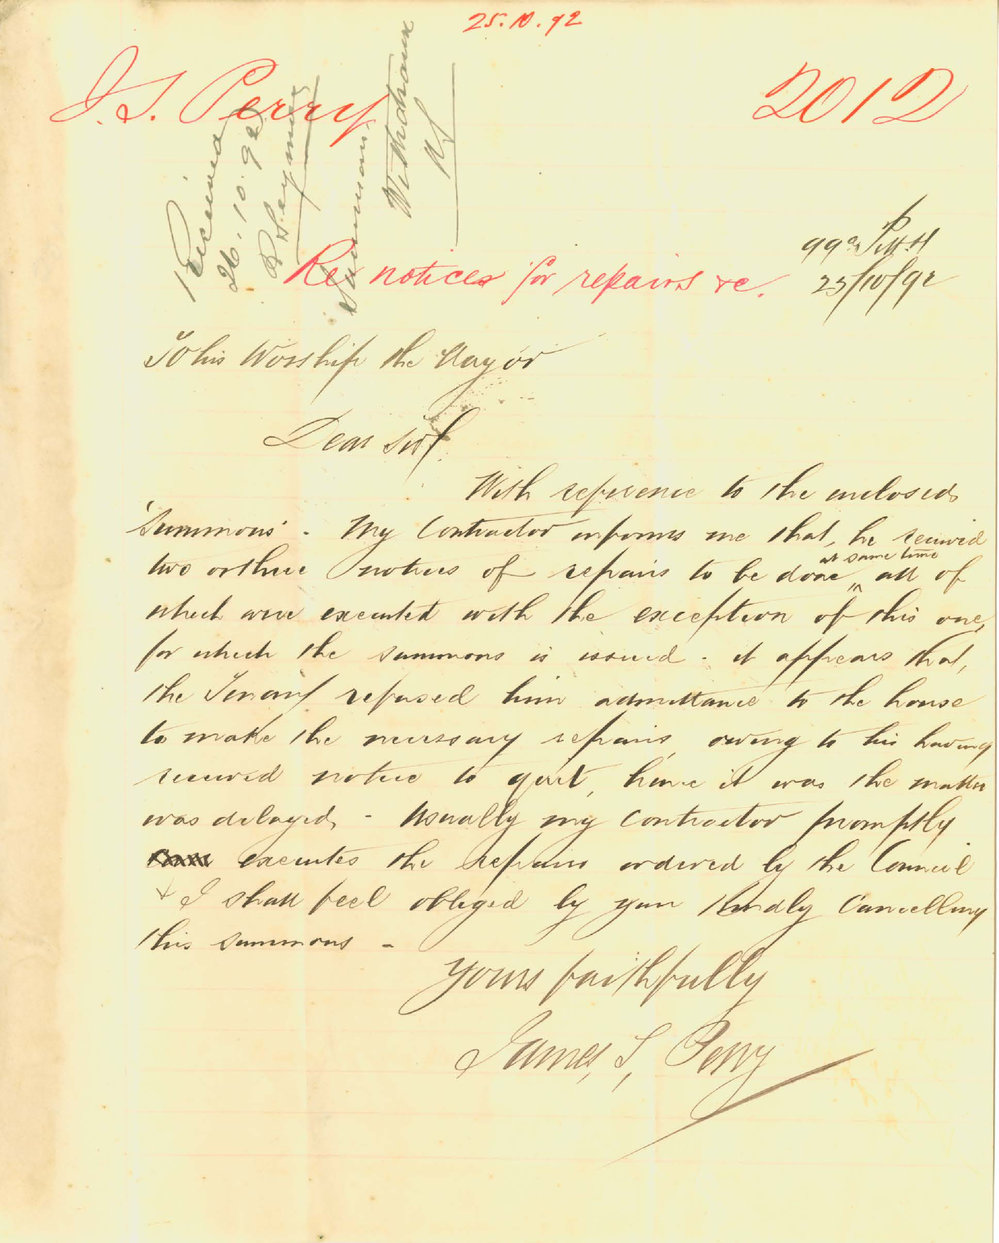 25.10.92
J. S. Perry 2012
Received
26.10.92
R Seymour
Summons
Withdrawn
Re notices for repairs &c.
99a Pitt St
25/10/92
To his Worship the Mayor
Dear Sir/
With reference to the enclosed
'Summons' - My Contractor informs me that, he received
two or three notices of repairs to be done at same time, all of
which were executed with the exception of this one,
for which the summons is issued - it appears that,
the Tenant refused him admittance to the house
to make the necessary repairs, owing to his having
received notice to quit, hence it was the matter
was delayed, - Usually my contractor promptly
executes the repairs ordered by the Council
& I shall feel obliged by your kindly Cancelling
this summons -
Yours faithfully
James, S, Perry